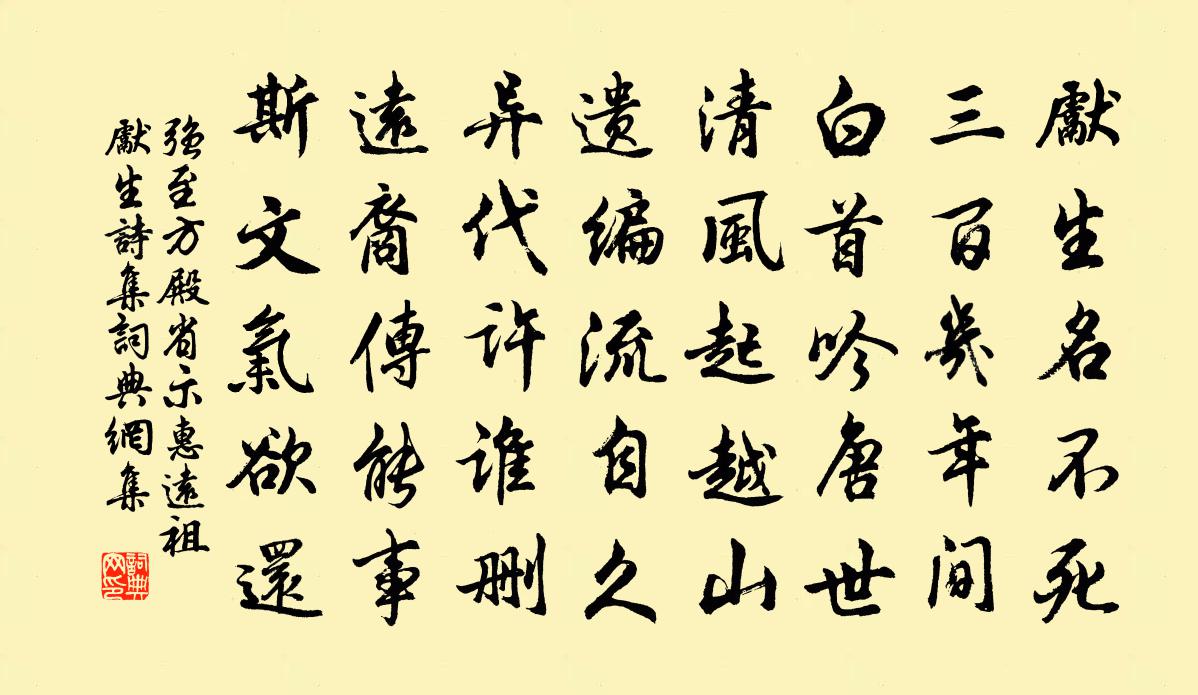 獻生名不死
三百幾年間
白首吟唐世
清風起越山
遺编流自久
异代许誰删
遠裔傳能事
斯文氣欲還
強至方殿省示惠遠祖
獻生詩集詞典網集
詞典網印